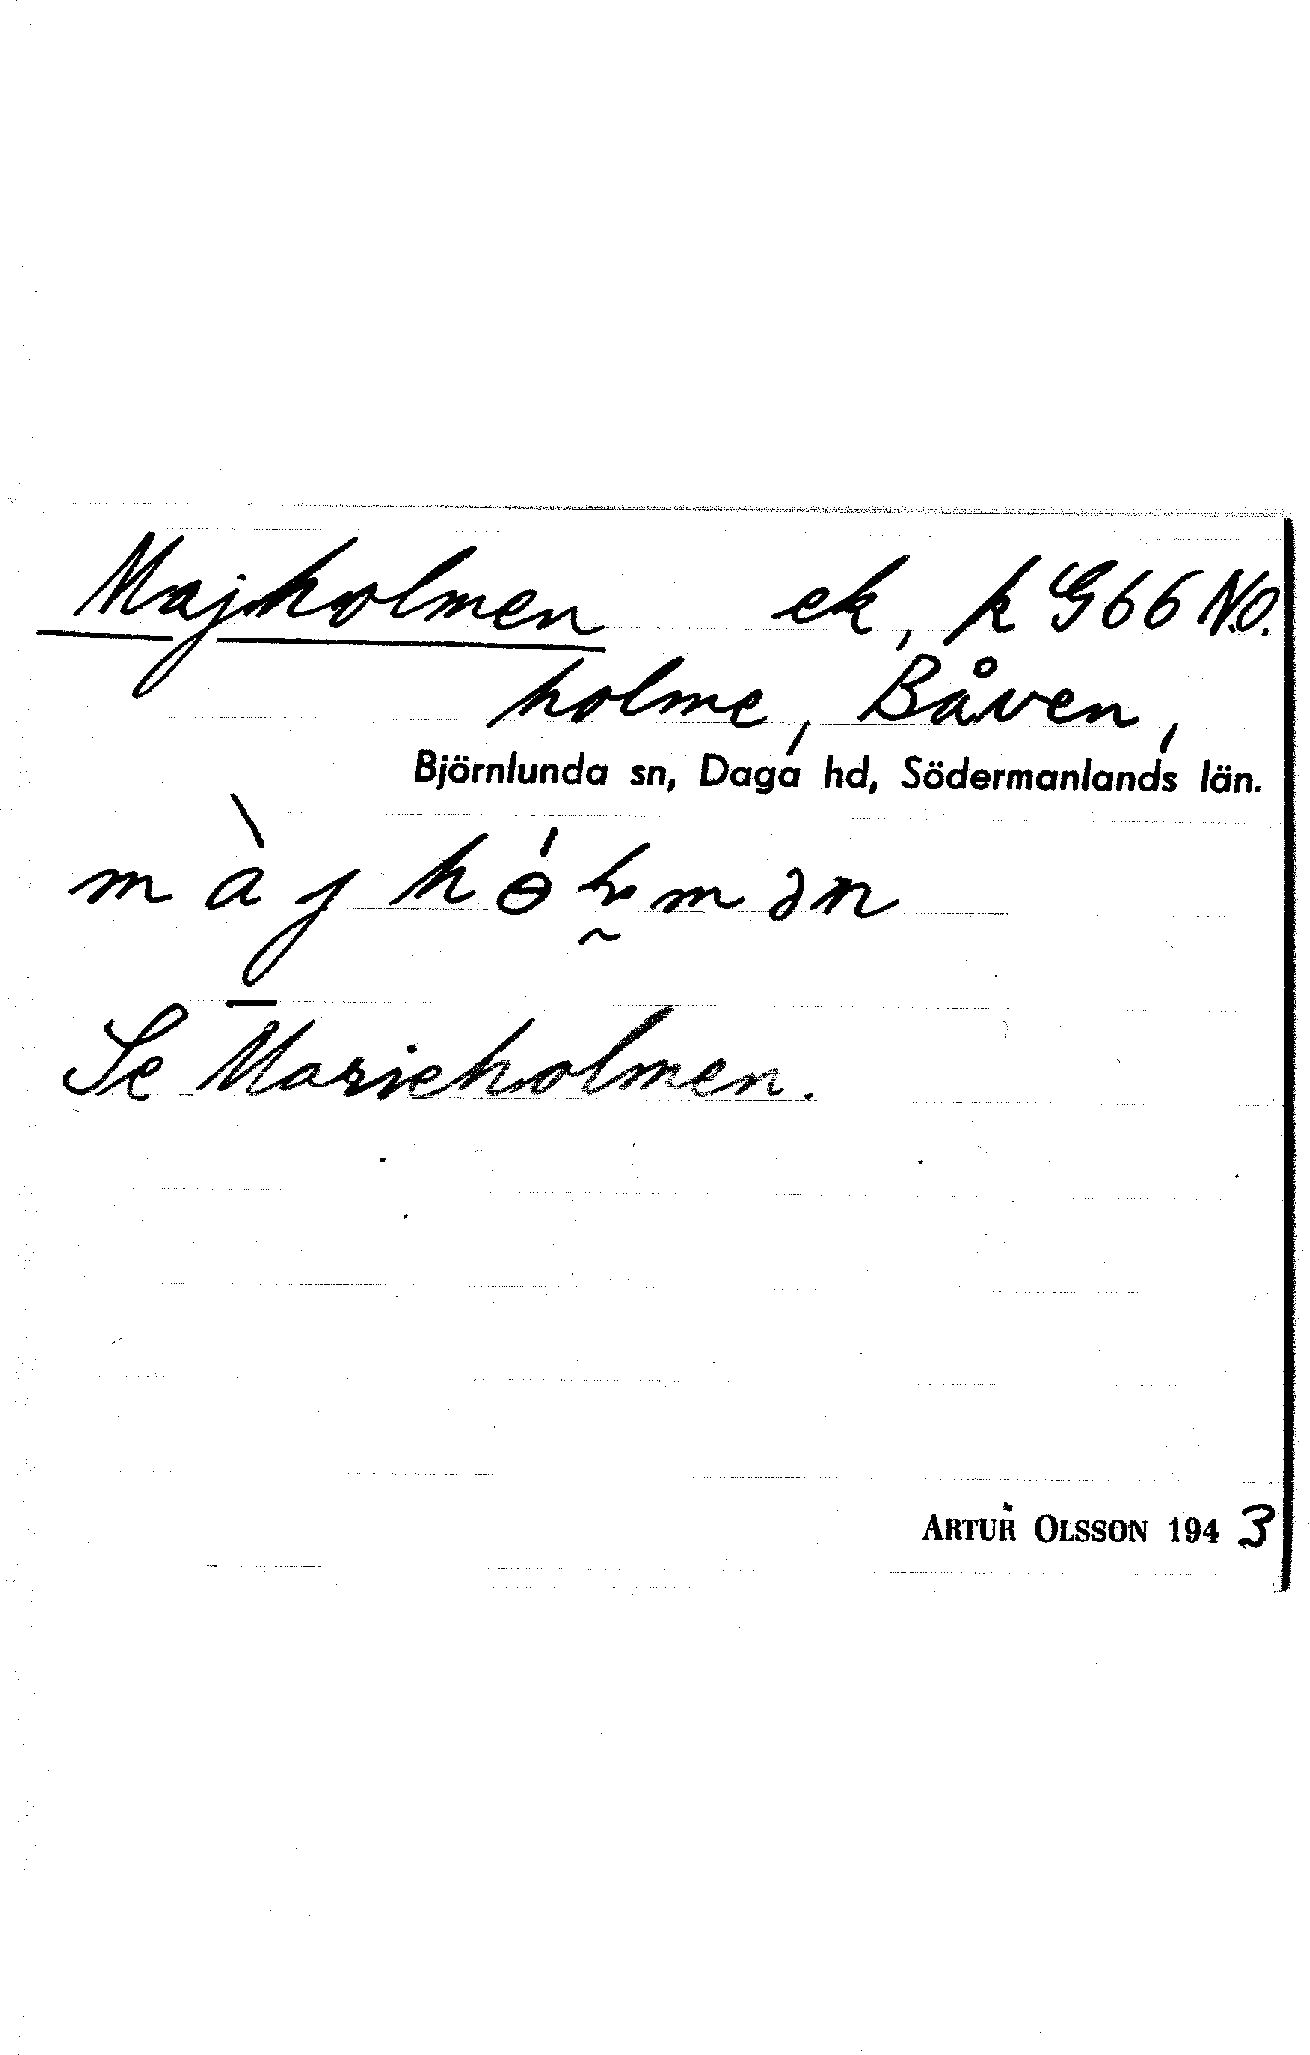 Majholmen ek, k G66 N.O.
holme, Båven,
Björnlunda sn, Daga hd, Södermanlands län.
Se Marieholmen.
ARTUR OLSSON 1943